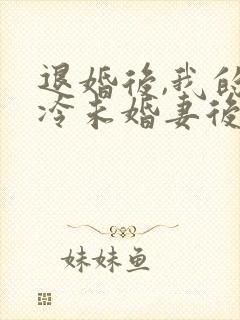 退婚後,我的
冷未婚妻後
妹妹鱼